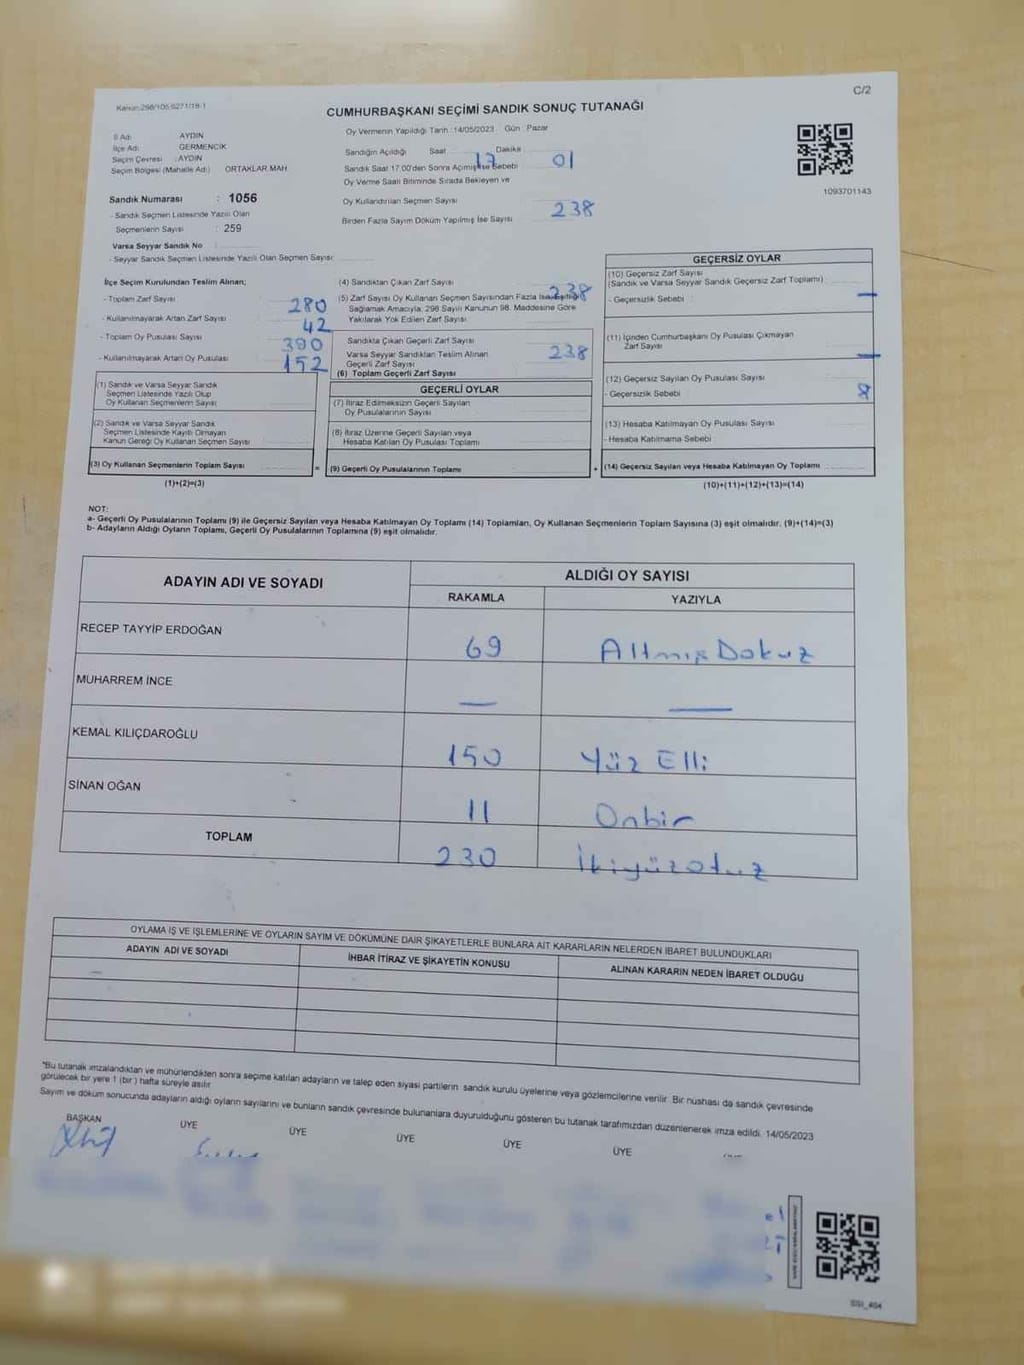 Kanun:298/105,6271/18-1
C/2
CUMHURBAŞKANI SEÇİMİ SANDIK SONUÇ TUTANAĞI
İl Adı : AYDIN
İlçe Adı : GERMENCİK
Seçim Çevresi : AYDIN
Seçim Bölgesi (Mahalle Adı) : ORTAKLAR MAH
Sandık Numarası : 1056
- Sandık Seçmen Listesinde Yazılı Olan
Seçmenlerin Sayısı : 259
Varsa Seyyar Sandık No :
- Seyyar Sandık Seçmen Listesinde Yazılı Olan Seçmen Sayısı:
Oy Vermenin Yapıldığı Tarih :14/05/2023 Gün : Pazar
Sandığın Açıldığı Saat 17 Dakika 01
Sandık Saat 17:00'den Sonra Açılmış ise Sebebi
Oy Verme Saati Bitiminde Sırada Bekleyen ve
Oy Kullandırılan Seçmen Sayısı 238
Birden Fazla Sayım Döküm Yapılmış İse Sayısı
1093701143
İlçe Seçim Kurulundan Teslim Alınan;
- Toplam Zarf Sayısı 280
- Kullanılmayarak Artan Zarf Sayısı 42
- Toplam Oy Pusulası Sayısı 390
- Kullanılmayarak Artan Oy Pusulası 152
(1) Sandık ve Varsa Seyyar Sandık
Seçmen Listesinde Yazılı Olup
Oy Kullanan Seçmenlerin Sayısı
(2) Sandık ve Varsa Seyyar Sandık
Seçmen Listesinde Kayıtlı Olmayan
Kanun Gereği Oy Kullanan Seçmen Sayısı
(3) Oy Kullanan Seçmenlerin Toplam Sayısı =
(1)+(2)=(3)
(4) Sandıktan Çıkan Zarf Sayısı 238
(5) Zarf Sayısı Oy Kullanan Seçmen Sayısından Fazla İse, Eşitliği
Sağlamak Amacıyla, 298 Sayılı Kanunun 98. Maddesine Göre
Yakılarak Yok Edilen Zarf Sayısı
Sandıkta Çıkan Geçerli Zarf Sayısı
Varsa Seyyar Sandıktan Teslim Alınan 238
Geçerli Zarf Sayısı
(6) Toplam Geçerli Zarf Sayısı
GEÇERLİ OYLAR
(7) İtiraz Edilmeksizin Geçerli Sayılan
Oy Pusulalarının Sayısı
(8) İtiraz Üzerine Geçerli Sayılan veya
Hesaba Katılan Oy Pusulası Toplamı
(9) Geçerli Oy Pusulalarının Toplamı +
GEÇERSİZ OYLAR
(10) Geçersiz Zarf Sayısı
(Sandık ve Varsa Seyyar Sandık Geçersiz Zarf Toplamı)
- Geçersizlik Sebebi : —
(11) İçinden Cumhurbaşkanı Oy Pusulası Çıkmayan
Zarf Sayısı —
(12) Geçersiz Sayılan Oy Pusulası Sayısı
- Geçersizlik Sebebi : 8
(13) Hesaba Katılmayan Oy Pusulası Sayısı
- Hesaba Katılmama Sebebi :
(14) Geçersiz Sayılan veya Hesaba Katılmayan Oy Toplamı
(10)+(11)+(12)+(13)=(14)
NOT:
a- Geçerli Oy Pusulalarının Toplamı (9) ile Geçersiz Sayılan veya Hesaba Katılmayan Oy Toplamı (14) Toplamları, Oy Kullanan Seçmenlerin Toplam Sayısına (3) eşit olmalıdır. (9)+(14)=(3)
b- Adayların Aldığı Oyların Toplamı, Geçerli Oy Pusulalarının Toplamına (9) eşit olmalıdır.
ADAYIN ADI VE SOYADI ALDIĞI OY SAYISI
RAKAMLA YAZIYLA
RECEP TAYYİP ERDOĞAN 69 Altmış Dokuz
MUHARREM İNCE — —
KEMAL KILIÇDAROĞLU 150 Yüz Elli
SİNAN OĞAN 11 Onbir
TOPLAM 230 İkiyüzotuz
OYLAMA İŞ VE İŞLEMLERİNE VE OYLARIN SAYIM VE DÖKÜMÜNE DAİR ŞİKAYETLERLE BUNLARA AİT KARARLARIN NELERDEN İBARET BULUNDUKLARI
ADAYIN ADI VE SOYADI İHBAR İTİRAZ VE ŞİKAYETİN KONUSU ALINAN KARARIN NEDEN İBARET OLDUĞU
*Bu tutanak imzalandıktan ve mühürlendikten sonra seçime katılan adayların ve talep eden siyasi partilerin sandık kurulu üyelerine veya gözlemcilerine verilir. Bir nüshası da sandık çevresinde
görülecek bir yere 1 (bir) hafta süreyle asılır.
Sayım ve döküm sonucunda adayların aldığı oyların sayılarını ve bunların sandık çevresinde bulunanlara duyurulduğunu gösteren bu tutanak tarafımızdan düzenlenerek imza edildi. 14/05/2023
BAŞKAN ÜYE ÜYE ÜYE ÜYE ÜYE
SSI_404